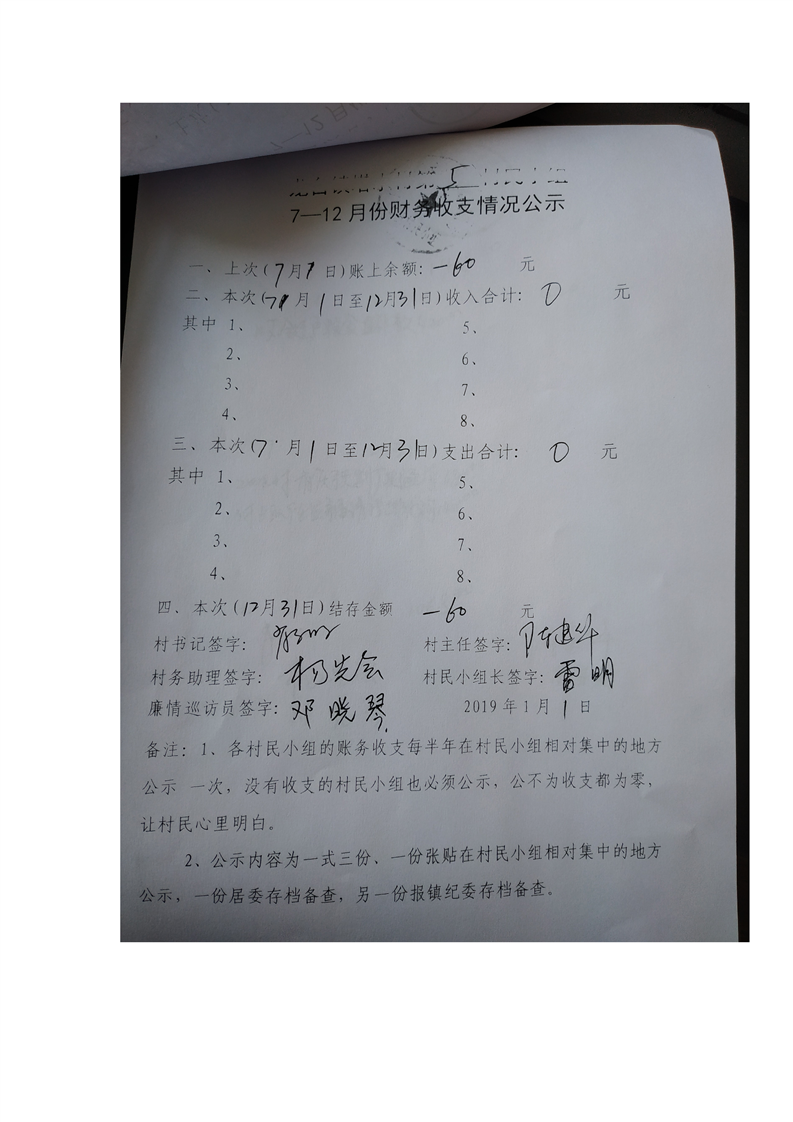 村第5村民小组
7—12月份财务收支情况公示
一、上次(7月1日)账上余额：-60 元
二、本次(7月1日至12月31日)收入合计：0 元
其中 1、 5、
2、 6、
3、 7、
4、 8、
三、本次(7月1日至12月31日)支出合计：0 元
其中 1、 5、
2、 6、
3、 7、
4、 8、
四、本次(12月31日)结存金额 -60 元
村书记签字： 村主任签字：陈建华
村务助理签字：杨先会 村民小组长签字：雷明
廉情巡访员签字：邓晓琴 2019年1月1日
备注：1、各村民小组的账务收支每半年在村民小组相对集中的地方
公示 一次，没有收支的村民小组也必须公示，公不为收支都为零，
让村民心里明白。
2、公示内容为一式三份、一份张贴在村民小组相对集中的地方
公示，一份居委存档备查，另一份报镇纪委存档备查。